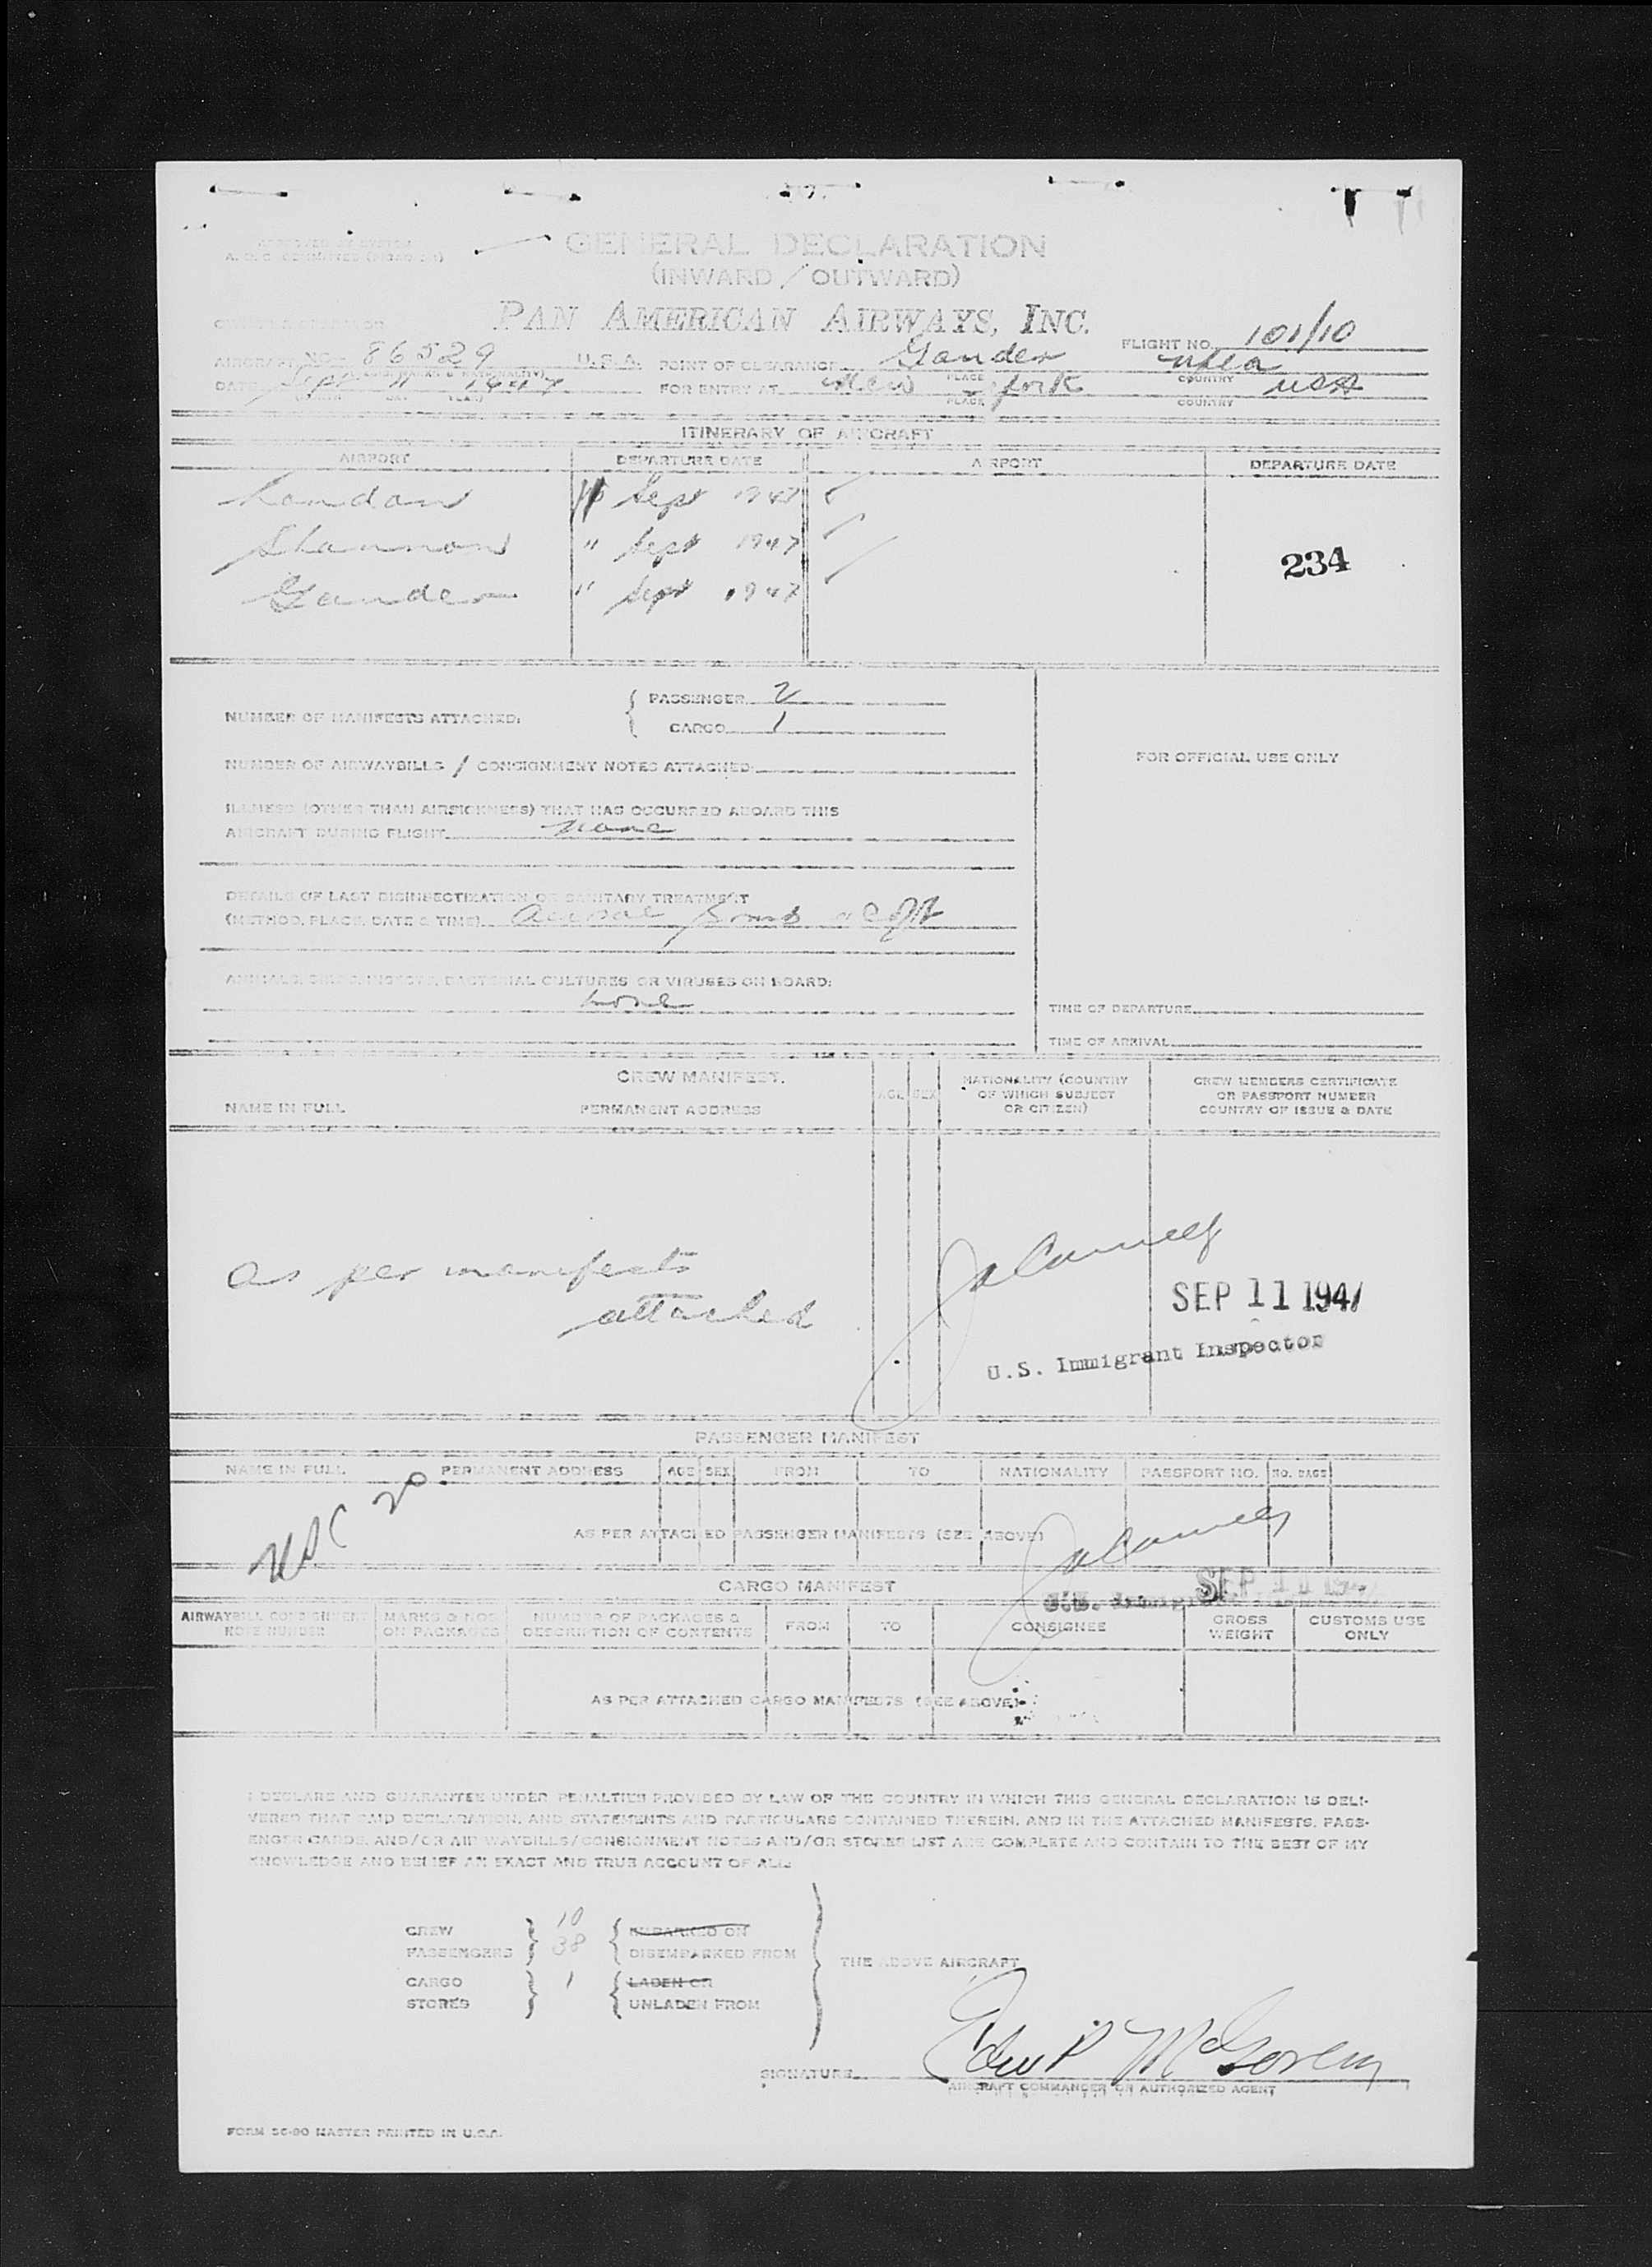 GENERAL DECLARATION
(INWARD / OUTWARD)
PAN AMERICAN AIRWAYS, INC.
FLIGHT NO. 101/10
AIRCRAFT NO. 86529 U.S.A. POINT OF CLEARANCE Gander Nfld
PLACE COUNTRY
DATE Sept 11 1947 FOR ENTRY AT New York USA
PLACE COUNTRY
ITINERARY OF AIRCRAFT
AIRPORT DEPARTURE DATE AIRPORT DEPARTURE DATE
London Sept 1947
Shannon " Sept 1947
234
Gander " Sept 1947
NUMBER OF MANIFESTS ATTACHED: PASSENGER 2
CARGO 1
NUMBER OF AIRWAYBILLS / CONSIGNMENT NOTES ATTACHED:
FOR OFFICIAL USE ONLY
ILLNESS (OTHER THAN AIRSICKNESS) THAT HAS OCCURRED ABOARD THIS
AIRCRAFT DURING FLIGHT none
DETAILS OF LAST DISINSECTIZATION OR SANITARY TREATMENT
(METHOD, PLACE, DATE & TIME)
ANIMALS, BIRDS, INSECTS, BACTERIAL CULTURES OR VIRUSES ON BOARD:
none
TIME OF DEPARTURE
TIME OF ARRIVAL
CREW MANIFEST.
NAME IN FULL PERMANENT ADDRESS AGE SEX NATIONALITY (COUNTRY OF WHICH SUBJECT OR CITIZEN) CREW MEMBERS CERTIFICATE OR PASSPORT NUMBER COUNTRY OF ISSUE & DATE
As per manifests
attached
SEP 11 1947
U.S. Immigrant Inspector
PASSENGER MANIFEST
NAME IN FULL PERMANENT ADDRESS AGE SEX FROM TO NATIONALITY PASSPORT NO. NO. BAGS
USC 20
AS PER ATTACHED PASSENGER MANIFESTS (SEE ABOVE)
CARGO MANIFEST
SEP 11 1947
AIRWAYBILL CONSIGNMENT NOTE NUMBER MARKS & NOS ON PACKAGES NUMBER OF PACKAGES & DESCRIPTION OF CONTENTS FROM TO CONSIGNEE GROSS WEIGHT CUSTOMS USE ONLY
AS PER ATTACHED CARGO MANIFESTS (SEE ABOVE)
I DECLARE AND GUARANTEE UNDER PENALTIES PROVIDED BY LAW OF THE COUNTRY IN WHICH THIS GENERAL DECLARATION IS DELI-
VERED THAT SAID DECLARATION, AND STATEMENTS AND PARTICULARS CONTAINED THEREIN, AND IN THE ATTACHED MANIFESTS, PASS-
ENGER CARDS, AND/OR AIR WAYBILLS/CONSIGNMENT NOTES AND/OR STORES LIST ARE COMPLETE AND CONTAIN TO THE BEST OF MY
KNOWLEDGE AND BELIEF AN EXACT AND TRUE ACCOUNT OF ALL:
CREW 10 EMBARKED ON
PASSENGERS 38 DISEMBARKED FROM
THE ABOVE AIRCRAFT
CARGO 1 LADEN ON
STORES UNLADEN FROM
SIGNATURE Edw P McGovern
AIRCRAFT COMMANDER OR AUTHORIZED AGENT
FORM 36-90 MASTER PRINTED IN U.S.A.